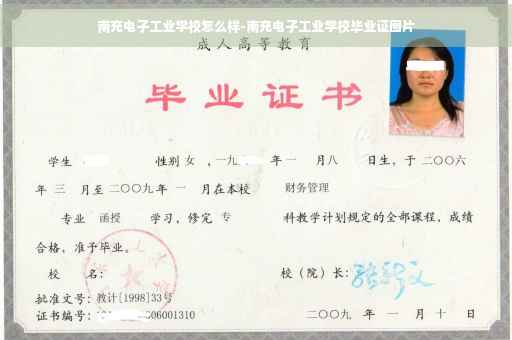 南充电子工业学校怎么样-南充电子工业学校毕业证图片
成人高等教育
毕业证书
学生 性别 女 ，一九 年 一 月八 日生，于 二〇〇六
年 三 月至 二〇〇九 年 一 月在本校 财务管理
专业 函授 学习，修完 专 科教学计划规定的全部课程，成绩
合格，准予毕业。
校 名： 校（院）长：
批准文号：教计[1998]33号
证书编号： 06001310 二〇〇九 年 一 月 十 日